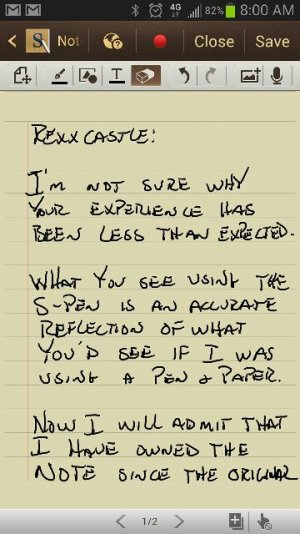 4G 82% 8:00 AM
S Not Close Save
T
REXXCASTLE:
I'M NOT SURE WHY
YOUR EXPERIENCE HAS
BEEN LESS THAN EXPECTED.
WHAT YOU SEE USING THE
S-PEN IS AN ACCURATE
REFLECTION OF WHAT
YOU'D SEE IF I WAS
USING A PEN & PAPER.
NOW I WILL ADMIT THAT
I HAVE OWNED THE
NOTE SINCE THE ORIGINAL
< 1/2 >